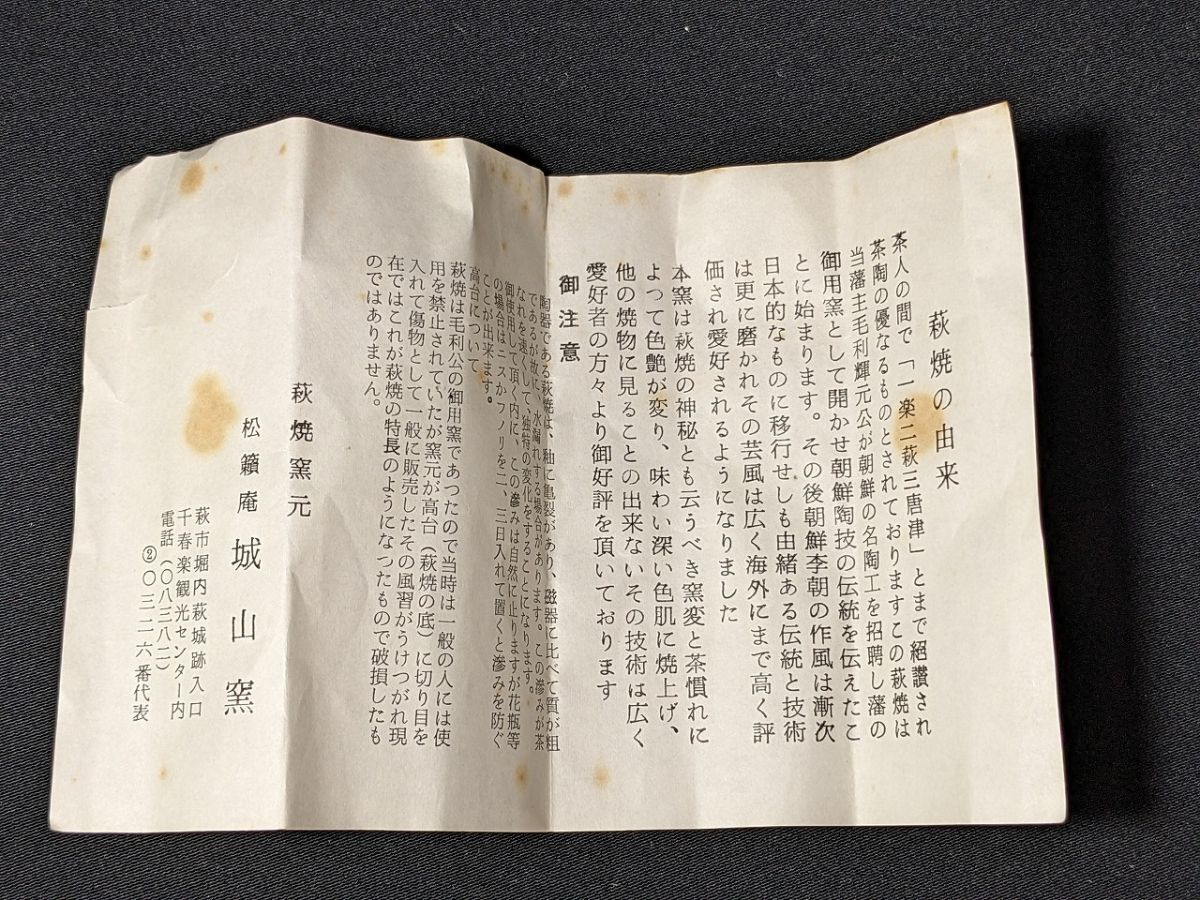 萩焼の由来
茶人の間で「一楽二萩三唐津」とまで紹讃され
茶陶の優なるものとされておりますこの萩焼は
当藩主毛利輝元公が朝鮮の名陶工を招聘し藩の
御用窯として開かせ朝鮮陶技の伝統を伝えたこ
とに始まります。その後朝鮮李朝の作風は漸次
日本的なものに移行せしも由緒ある伝統と技術
は更に磨かれその芸風は広く海外にまで高く評
価され愛好されるようになりました
本窯は萩焼の神秘とも云うべき窯変と茶慣れに
よって色艶が変り、味わい深い色肌に焼上げ、
他の焼物に見ることの出来ないその技術は広く
愛好者の方々より御好評を頂いております
御注意
陶器である萩焼は、釉に亀裂があり、磁器に比べて質が粗
であるが故に、水漏れする場合があります。この滲みが茶
なれを速くして、独特の変化をすることになります。
御使用して頂く内に、この滲みは自然に止りますが花瓶等
の場合はニスかフノリを二、三日入れて置くと滲みを防ぐ
ことが出来ます。
高台について
萩焼は毛利公の御用窯であつたので当時は一般の人には使
用を禁止されていたが窯元が高台（萩焼の底）に切り目を
入れて傷物として一般に販売したその風習がうけつがれ現
在ではこれが萩焼の特長のようになつたもので破損したも
のではありません。
萩焼窯元
松籟庵 城山窯
萩市堀内萩城跡入口
千春楽観光センター内
電話（〇八三八二）
②〇三二六番代表